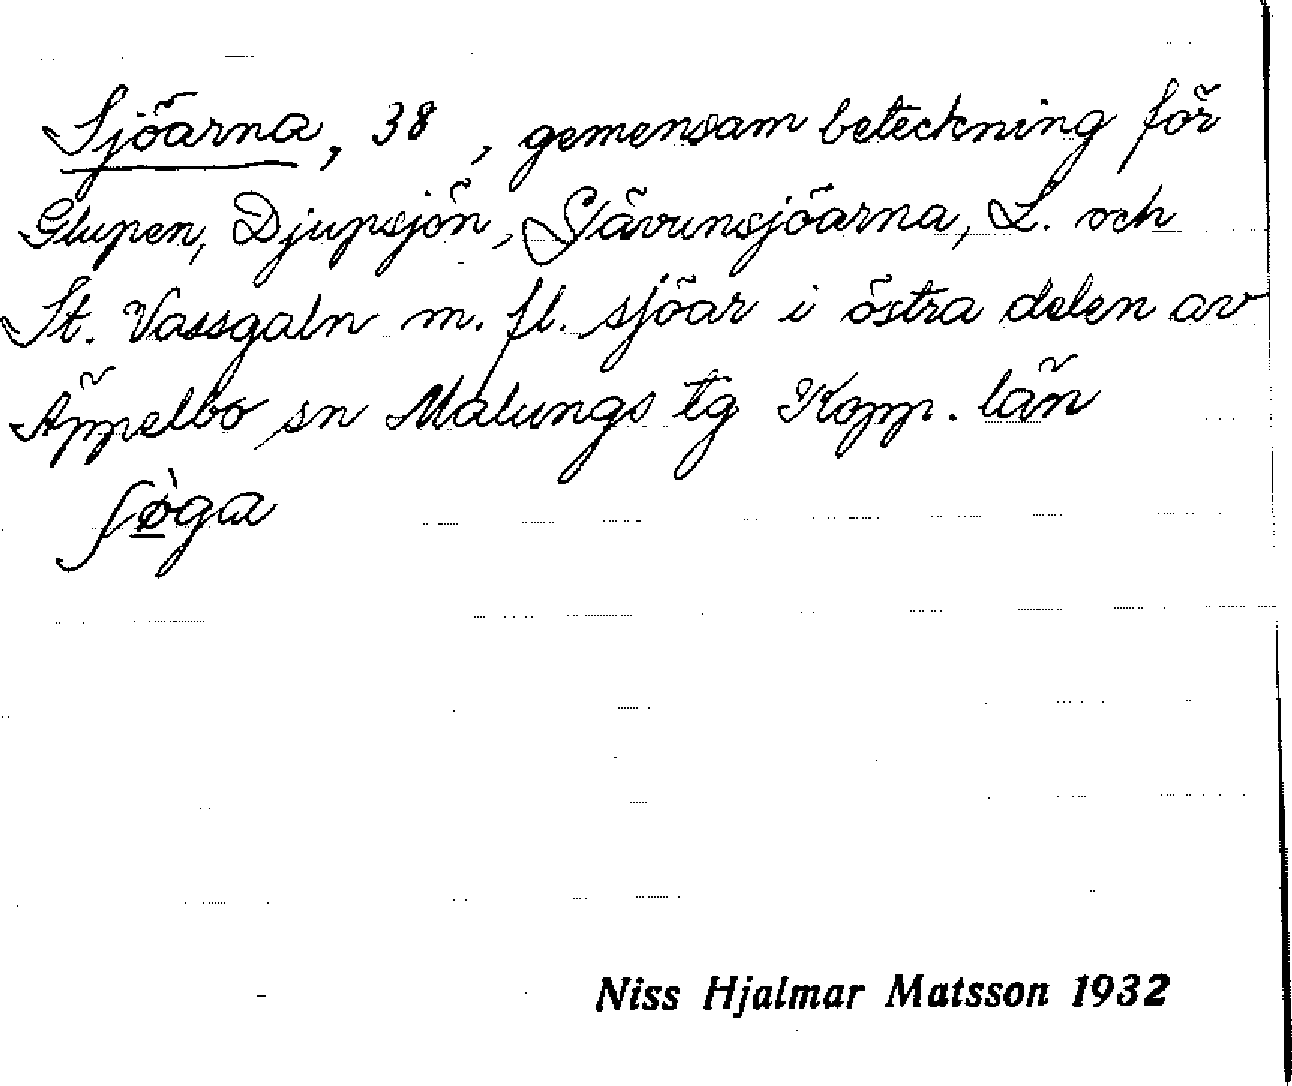 Sjöarna, 38 , gemensam beteckning för
Glupen, Djupsjön, Stävunsjöarna, L. och
St. Vassgaln m. fl. sjöar i östra delen av
Äppelbo sn Malungs tg Kopp. län
ʃø̀ga
Niss Hjalmar Matsson 1932